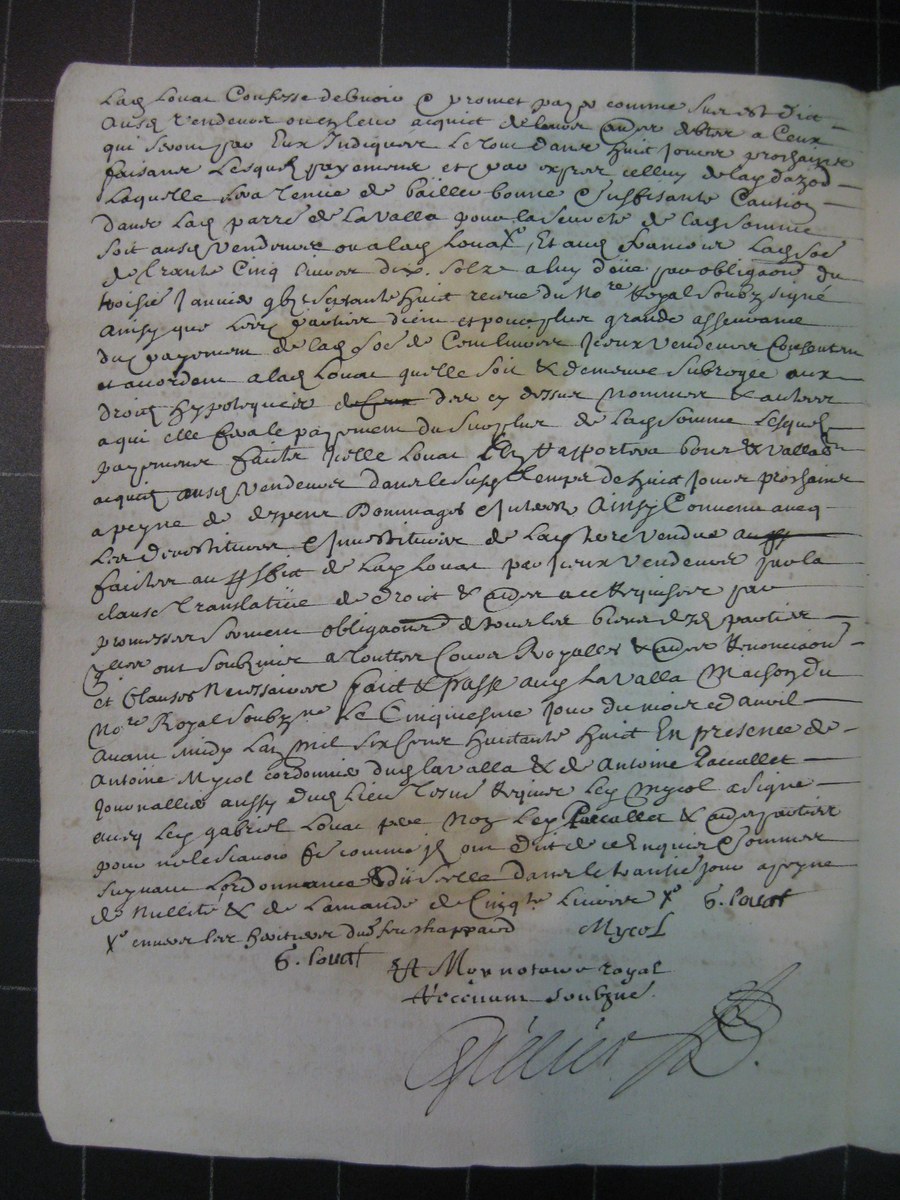 Lad Louat Confesse debvoir & promet payer comme sus est dict
ausd vendeur ou en leur acquict de leurs autres debtes a Ceux
qui seront par Eux Indiquer Le tout dans huit Jours prochains
faisant Lesquels payement et par exprès celluy de lad dazod
Laquelle sera tenue de bailler bonne & suffisante Caution
dans Lad parre de Lavalla pour la seureté de lad somme
soit ausd Vendeurs ou a lad Louat X, Et aud Lad Soe
de trante Cinq Livres dix solz a luy deue par obligaon du
troisie Janvier gbi septante huit receue du Nore Royal Soubz signé
Ainsy que Lesd parties dient et pour plus grande asseurance
du payement de lad soe de Cent livres Iceux Vendeurs Consentent
et accordent a lad Louat quelle soit & demeure subrogée aux
droits hypotequeire des cy dessus nommer & autres
a qui elle fera le payement du surplus de Lad somme Lesquels
payements faits Icelle Louat En Rapportera bons & vallables
acquits ausd Vendeurs dans le susd temps de huit Jours prochains
a peyne de despens Dommages & Interest Ainsy Convenu avec
Les devestitures & Investitures de Lad terre Vendue
faittes au proffit de Lad Louat par Iceux Vendeurs par la
clause translative de droit & autres a ce Requises par
promesses serment obligaons de tous les biens desd parties
quils ont soubzmis a touttes Cours Royalles & autres Renonciaons
et Clauses Necessaires fait & Passé aud Lavalla Maison du
Nore Royal Soubzne Le Cinquiesme Jour du mois d avril
Avant midy Lan Mil Six Cent huittante huit En presence de
Antoine Mycol cordonnie dud lavalla & de Antoine Paccallet
Journallier aussy dud Lieu tesms Requis Led Mycol a signe
avecq Led gabriel Louat pre Non Led Paccallet & autres parties
pour ne le scavoir fe comme Ils ont dict de ce Enquis & sommes
suyvant Lordonnance & du selle dans le trantie jour a peyne
de Nullité & de Lamande de Cinqte Livres X G. louat
X envers les heritiers dud feu chappard Mycol
G. louat
Et Moy notaire royal
Recevant soubzne